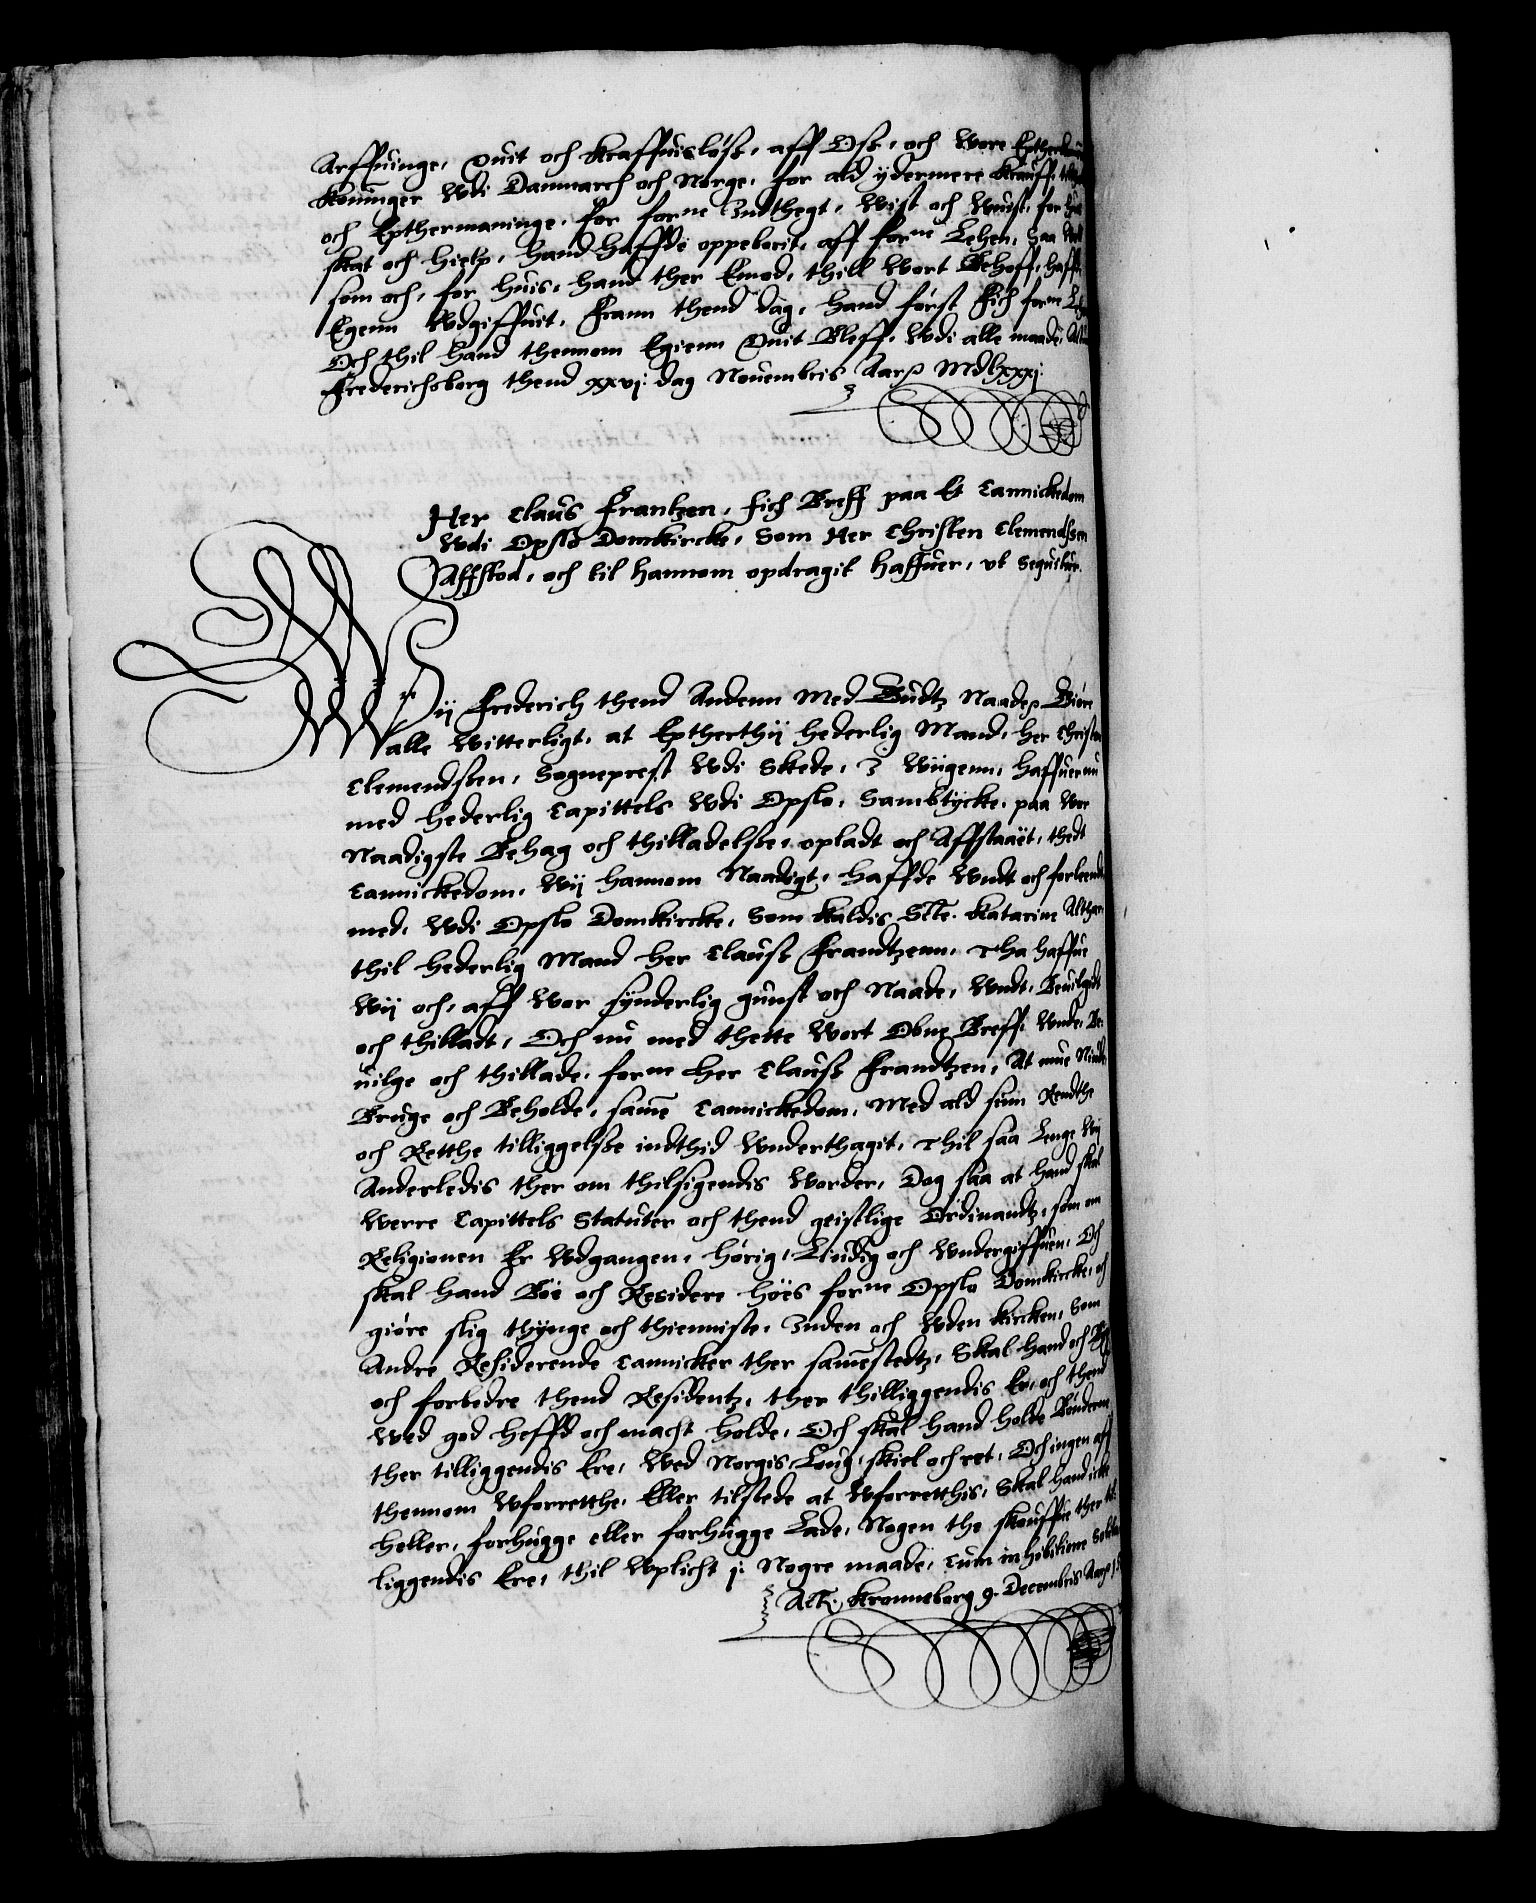 Arffuinge, Quit och Kraffuisløss, aff Oss, och Wore
Konninger Wdi Danmarch och Norge, for ald ydermere Krauff,
och Epthermaninge, for forne Indthegt, Wist och Wuist, for
skat och hielp, hand haffde oppeborit, aff forne Lehen, saa
som och, for huis, hand ther Emod, thill Wort Behoff,
Egenn Wdgiffuit, Frann thend dag, hand først Fich forne
Och thil hand thennom Egienn Quit Bleff, Wdi alle maade,
Frederichsborg thend xxvj: dag Nouembris Aar p MDlxxxj:
Her Claus Frantzen, fich Breff paa Et Cannickedom
Wdi Opslo Domkircke, Som Her Christen Clemendssen
Affstod, och til hannom opdragit haffuer, vt Sequitur.
Wij Frederich thend Andenn Med Gudtz Naade p Giøre
alle Witterligt, at Eptherthij hederlig Mand, her Christen
Clemendssen, Sogneprest Wdi Skede, I Wiigenn, haffuer nu
med hederlig Capittels Wdi Opslo, Sambtycke, paa Wor
Naadigste Behag och thilladelsse, opladt och Affstaaet, thedt
Cannickedom, Wij hannom Naadigt, haffde Wndt och forleendt
med, Wdi Opslo Domkircke, Som Kaldis Ste. Katarine Althar
thil hederlig Mand her Clauss Frandtzenn, Tha haffue
Wij och, aff Wor synderlig gunst och Naade, Wndt, Beuilgedt
och thilladt, Och nu med thette Wort Obne Breff, Wnde, Be-
uilge och thillade, forne her Clauss Frandtzen, At mue Niude
Bruge och Beholde, same Cannickedom, Med ald sinn Rendthe
och Retthe tilliggelsse indthid Wnderthagit, Thil saa Lenge Wij
Anderledis ther om thilsigendis Worder, Dog saa at hand skal
Werre Capittels Statuter och thend geistlige Ordinandtz, som om
Religionen Er Wdgangen, hørig, Liudig och Wndergiffuen, Och
skal hand Boe och Residere hoes forne Opslo Domkircke, och
giøre slig thynge och thienniste, Inden och Wden Kircken, Som
Andre Residerende Cannicker ther samestedtz, Skal hand och
och forbedre thend Residentz, ther thilliggendis Er, och thend
Wed god heffd och macht holde, Och skal hand holde Bønderne
ther tilliggendis Ere, Wed Norgis Loug, skiel och ret, Och ingen aff
thennom Wforretthe, Eller tilstede at Wforretthis, Skal hand icke
heller, forhugge eller forhugge Lade, Nogen the skouffue ther til
liggendis Ere, thil Wplicht j: Nogre maade, Cum inhibitione Solita
Actt: Kronneborg 9. Decembris Aar p